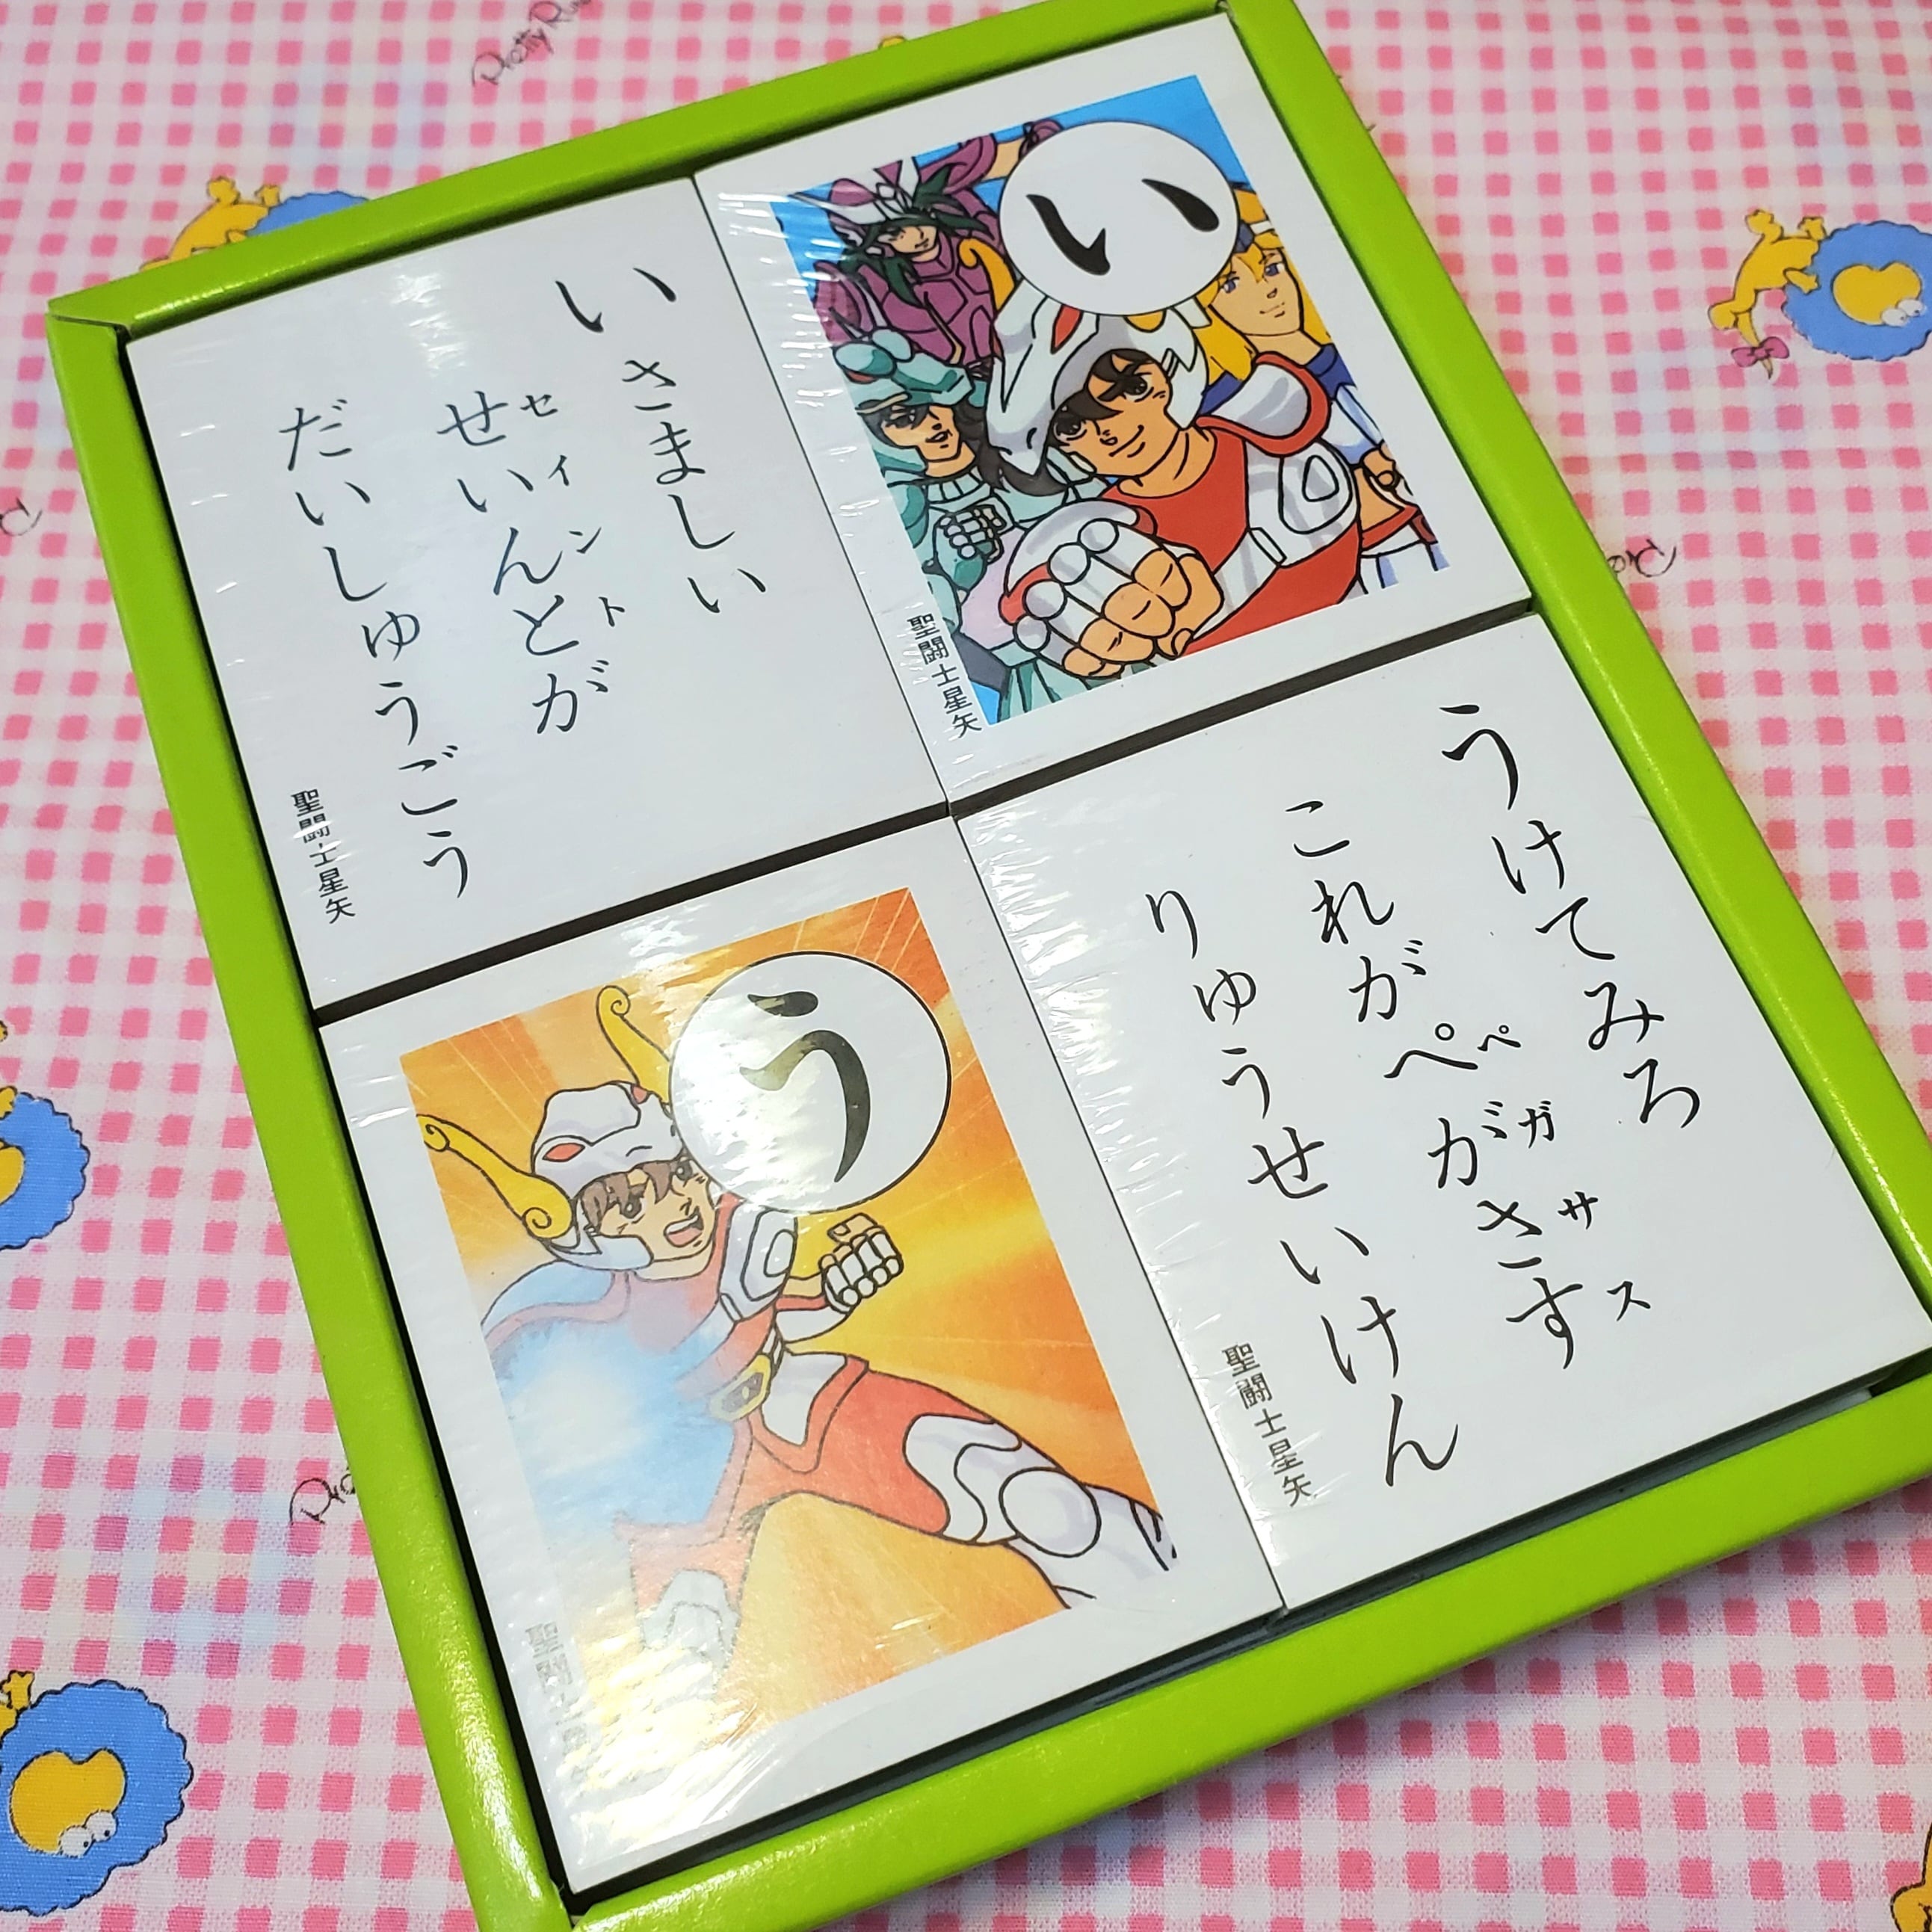 い
いさましい
せいんとが
セイント
だいしゅうごう
聖闘士星矢
聖闘士星矢
うけてみろ
これがぺがさす
ペガサス
りゅうせいけん
聖闘士星矢
う